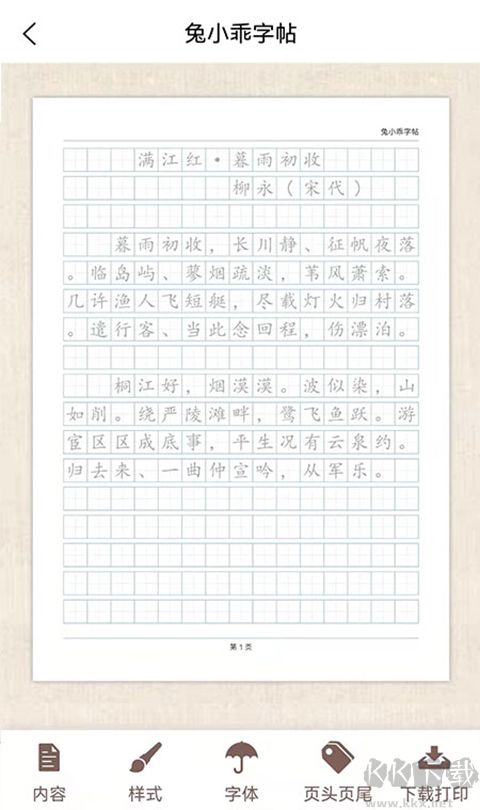 兔小乖字帖
兔小乖字帖
满江红·暮雨初收
柳永(宋代)
暮雨初收，长川静、征帆夜落
。临岛屿、蓼烟疏淡，苇风萧索。
几许渔人飞短艇，尽载灯火归村落
。遣行客、当此念回程，伤漂泊。
桐江好，烟漠漠。波似染，山
如削。绕严陵滩畔，鹭飞鱼跃。游
宦区区成底事，平生况有云泉约。
归去来、一曲仲宣吟，从军乐。
第1页
内容
样式
字体
页头页尾
下载打印
KK下载
www.kkx.net